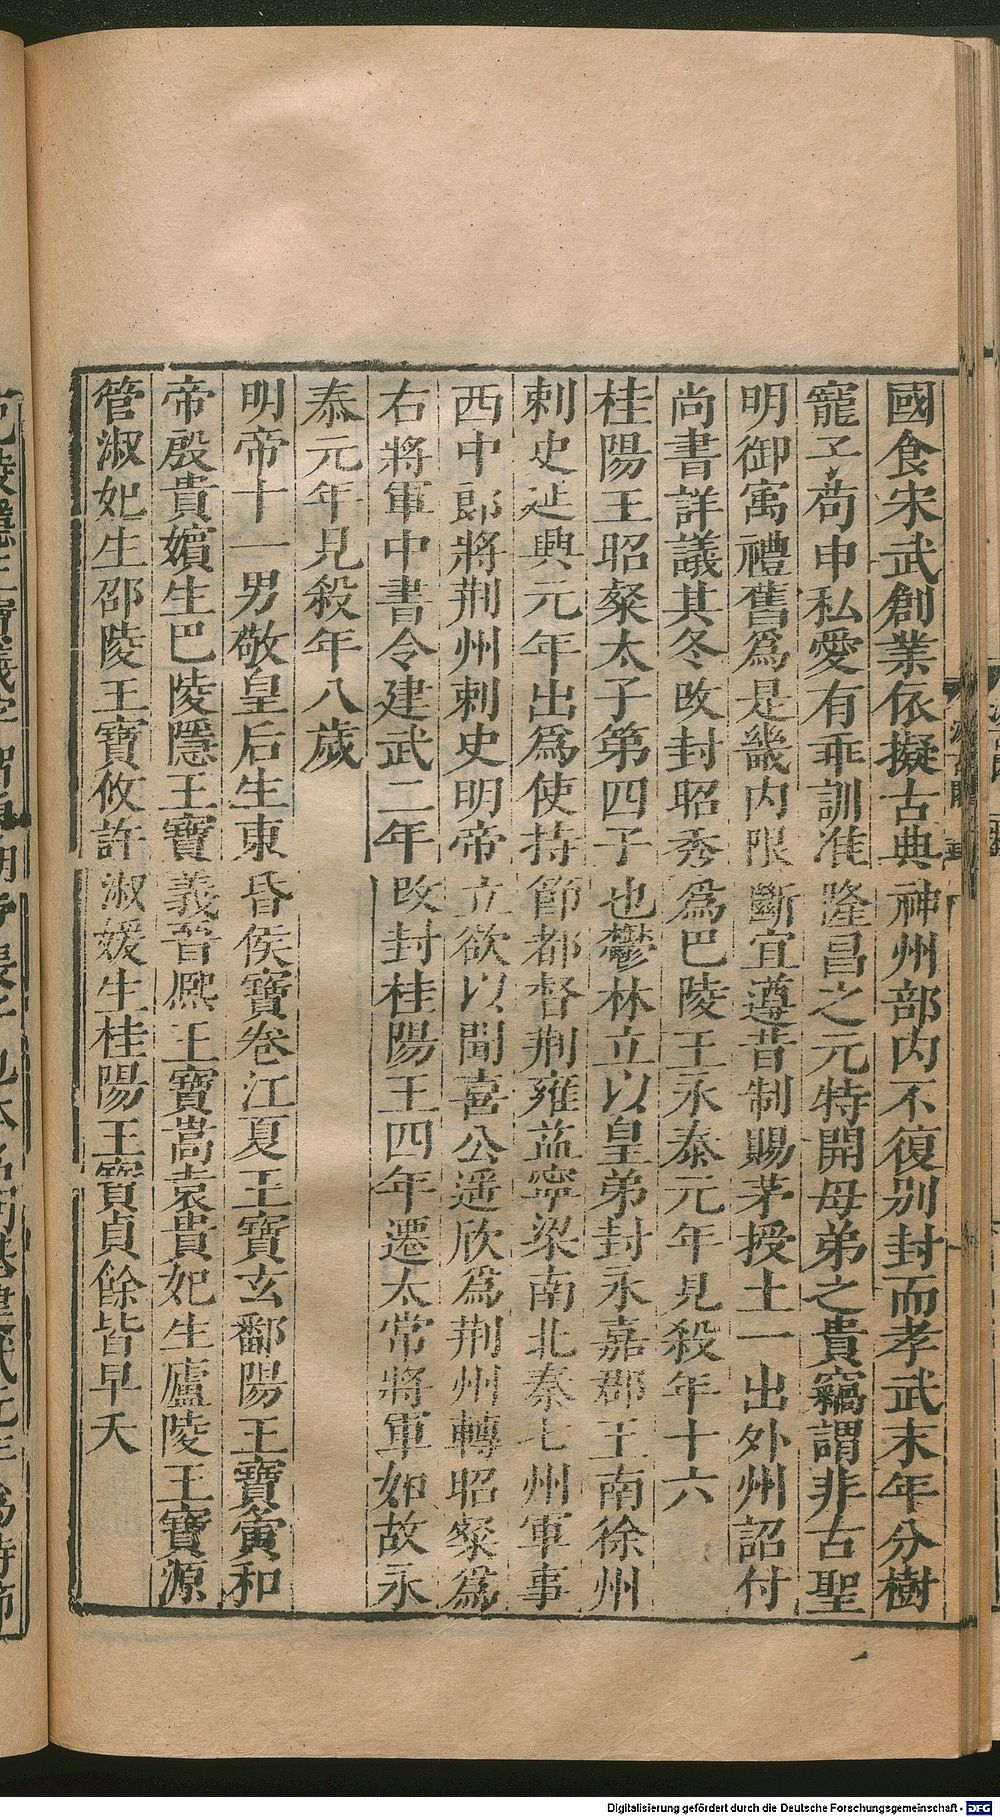 國食宋武創業依擬古典神州部内不復別封而孝武末年分樹
寵子苟申私愛有乖訓准隆昌之元特開母弟之貴竊謂非古聖
明御寓禮舊爲是畿内限斷宜遵昔制賜茅授土一出外州詔付
尚書詳議其冬改封昭秀爲巴陵王永泰元年見殺年十六
桂陽王昭粲太子第四子也鬱林立以皇弟封永嘉郡王南徐州
刺史延興元年出爲使持節都督荆雍益寧梁南北秦七州軍事
西中郎將荆州刺史明帝立欲以聞喜公遥欣爲荆州轉昭粲爲
右將軍中書令建武二年改封桂陽王四年遷太常將軍如故永
泰元年見殺年八歲
明帝十一男敬皇后生東昏侯寶卷江夏王寶玄鄱陽王寶寅和
帝殷貴嬪生巴陵隱王寶義晉熙王寶嵩袁貴妃生廬陵王寶源
管淑妃生邵陵王寶攸許淑媛生桂陽王寶貞餘皆早夭
Digitalisierung gefördert durch die Deutsche Forschungsgemeinschaft - DFG